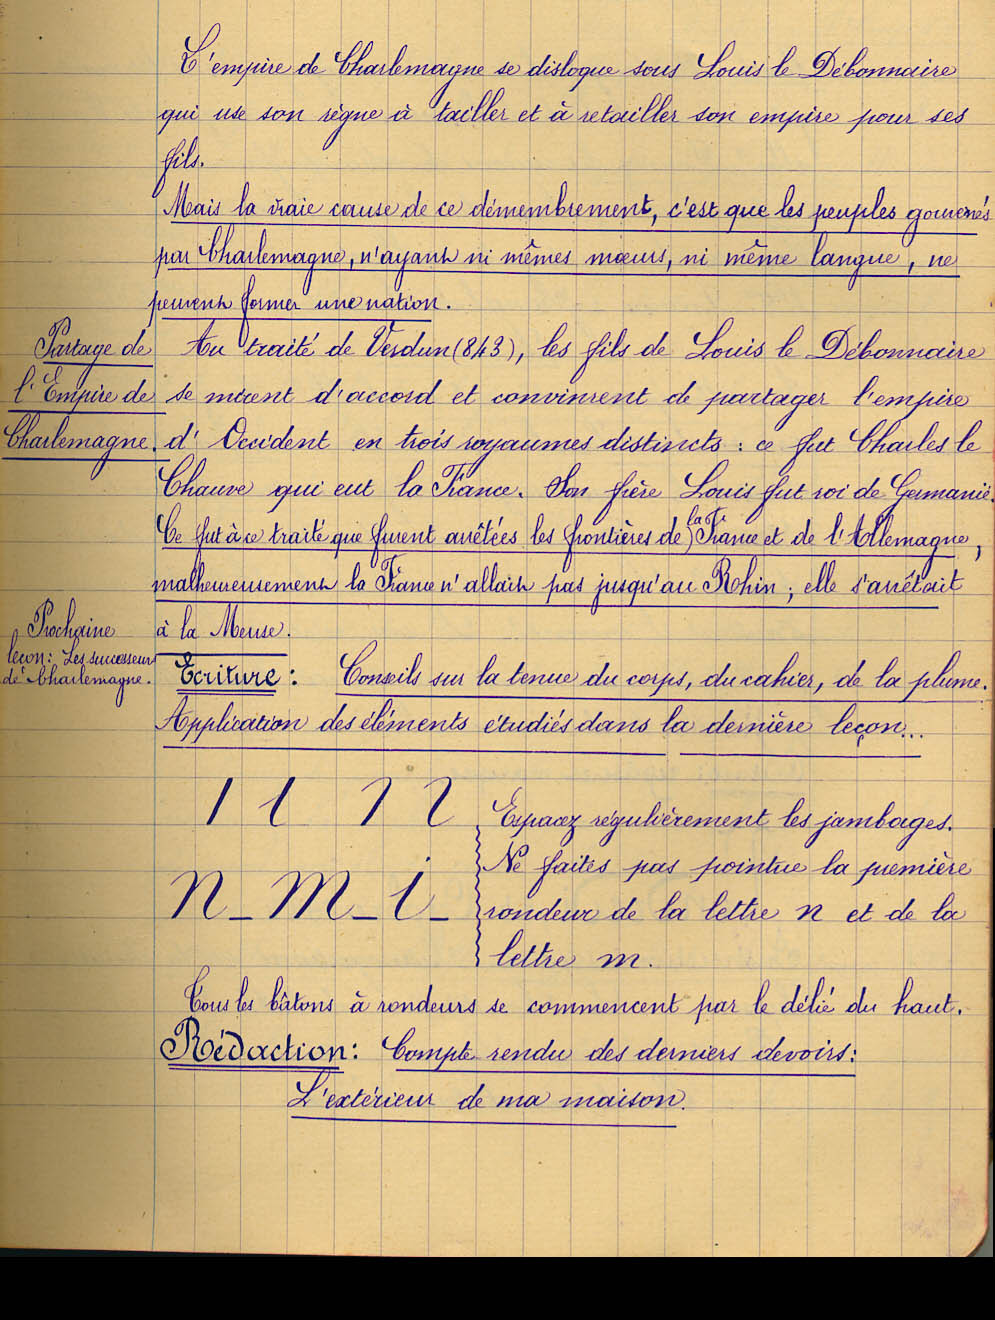 L'empire de Charlemagne se disloque sous Louis le Débonnaire
qui use son règne à tailler et à retailler son empire pour ses
fils.
Mais la vraie cause de ce démembrement, c'est que les peuples gouvernés
par Charlemagne, n'ayant ni mêmes mœurs, ni même langue, ne
peuvent former une nation.
Partage de
l'Empire de
Charlemagne.
Au traité de Verdun (843), les fils de Louis le Débonnaire
se mirent d'accord et convinrent de partager l'empire
d'Occident en trois royaumes distincts : ce fut Charles le
Chauve qui eut la France. Son frère Louis fut roi de Germanie.
Ce fut à ce traité que furent arrêtées les frontières de la France et de l'Allemagne,
malheureusement la France n'allait pas jusqu'au Rhin ; elle s'arrêtait
à la Meuse.
Prochaine
leçon : Les successeurs
de Charlemagne.
Ecriture : Conseils sur la tenue du corps, du cahier, de la plume.
Application des éléments étudiés dans la dernière leçon...
n _ m _ i _
Espacez régulièrement les jambages.
Ne faites pas pointue la première
rondeur de la lettre n et de la
lettre m.
Tous les bâtons à rondeurs se commencent par le délié du haut.
Rédaction : Compte rendu des derniers devoirs :
L'extérieur de ma maison.